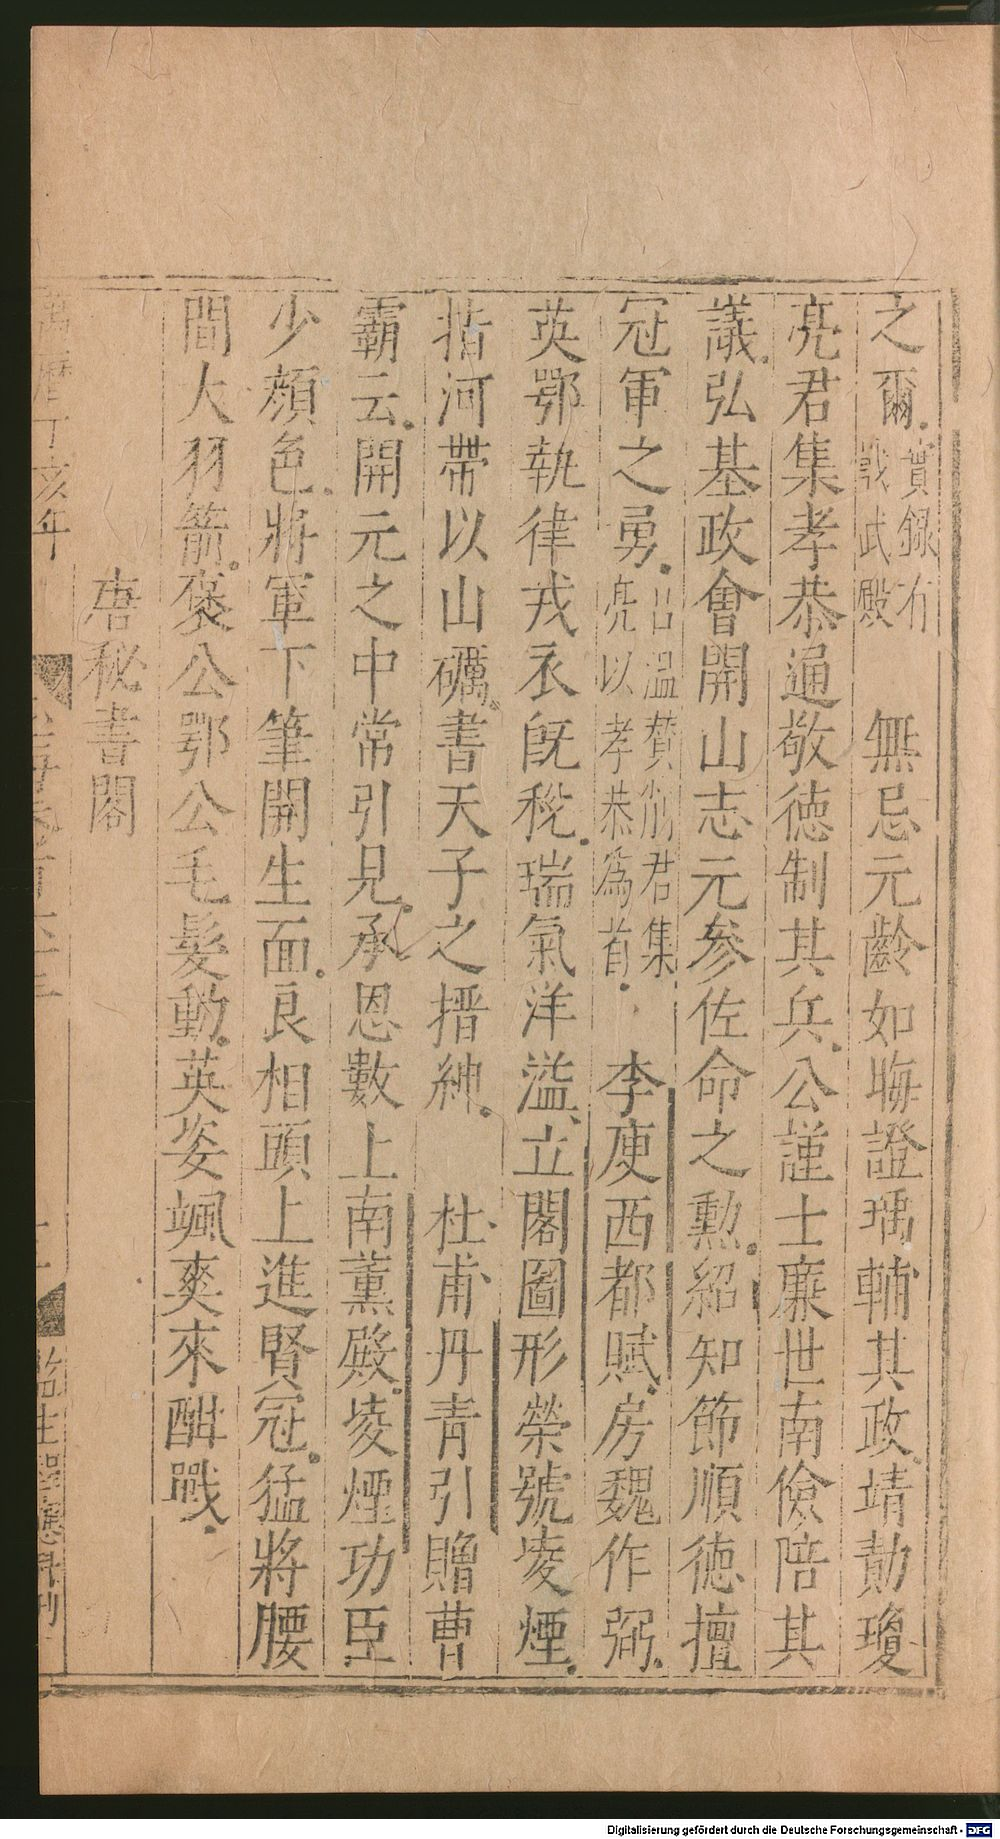 之爾實錄有戢武殿 無忌元齡如晦證瑀輔其政靖勣瓊
亮君集孝恭通敬德制其兵公謹士廉世南儉陪其
議弘基政會開山志元參佐命之勲紹知節順德擅
冠軍之勇呂溫贊削君集亮以孝恭爲首 李庾西都賦房魏作弼
英鄂執律戎衣旣稅瑞氣洋溢立閣圖形榮號凌煙
指河帶以山礪書天子之搢紳 杜甫丹青引贈曹
霸云開元之中常引見承恩數上南薰殿凌煙功臣
少顏色將軍下筆開生面良相頭上進賢冠猛將腰
間大羽箭褒公鄂公毛髮動英姿颯爽來酣戰
唐秘書閣
萬曆丁亥年
刊
Digitalisierung gefördert durch die Deutsche Forschungsgemeinschaft - DFG